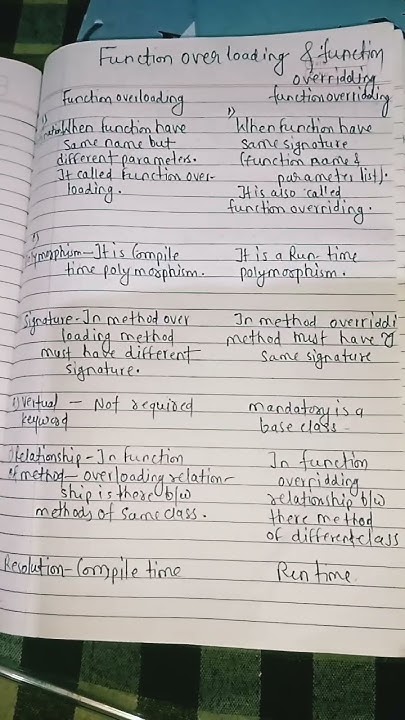 Function over loading & function
overridding
Function overloading
function overridding
When function have
same name but
different parameters.
It called function over-
loading.
When function have
same signature
(function name &
parameter list).
It is also called
function overiding.
ymorphism - It is Compile
time polymorphism.
It is a Run-time
polymorphism.
Signature - In method over
loading method
must have different
signature.
In method overriddi
method must have
same signature
vertual - Not required
keyword
mandatory is a
base class
Relationship - In function
of method - overloading relation-
ship is there b/w
methods of same class.
In function
overridding
relationship b/w
there method
of different class
Resolution - Compile time
Run time